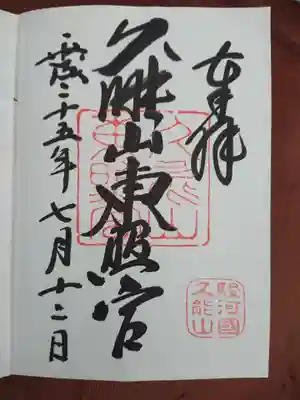 奉拝
久能山東照宮
平成二十五年七月十二日
駿河國
久能山